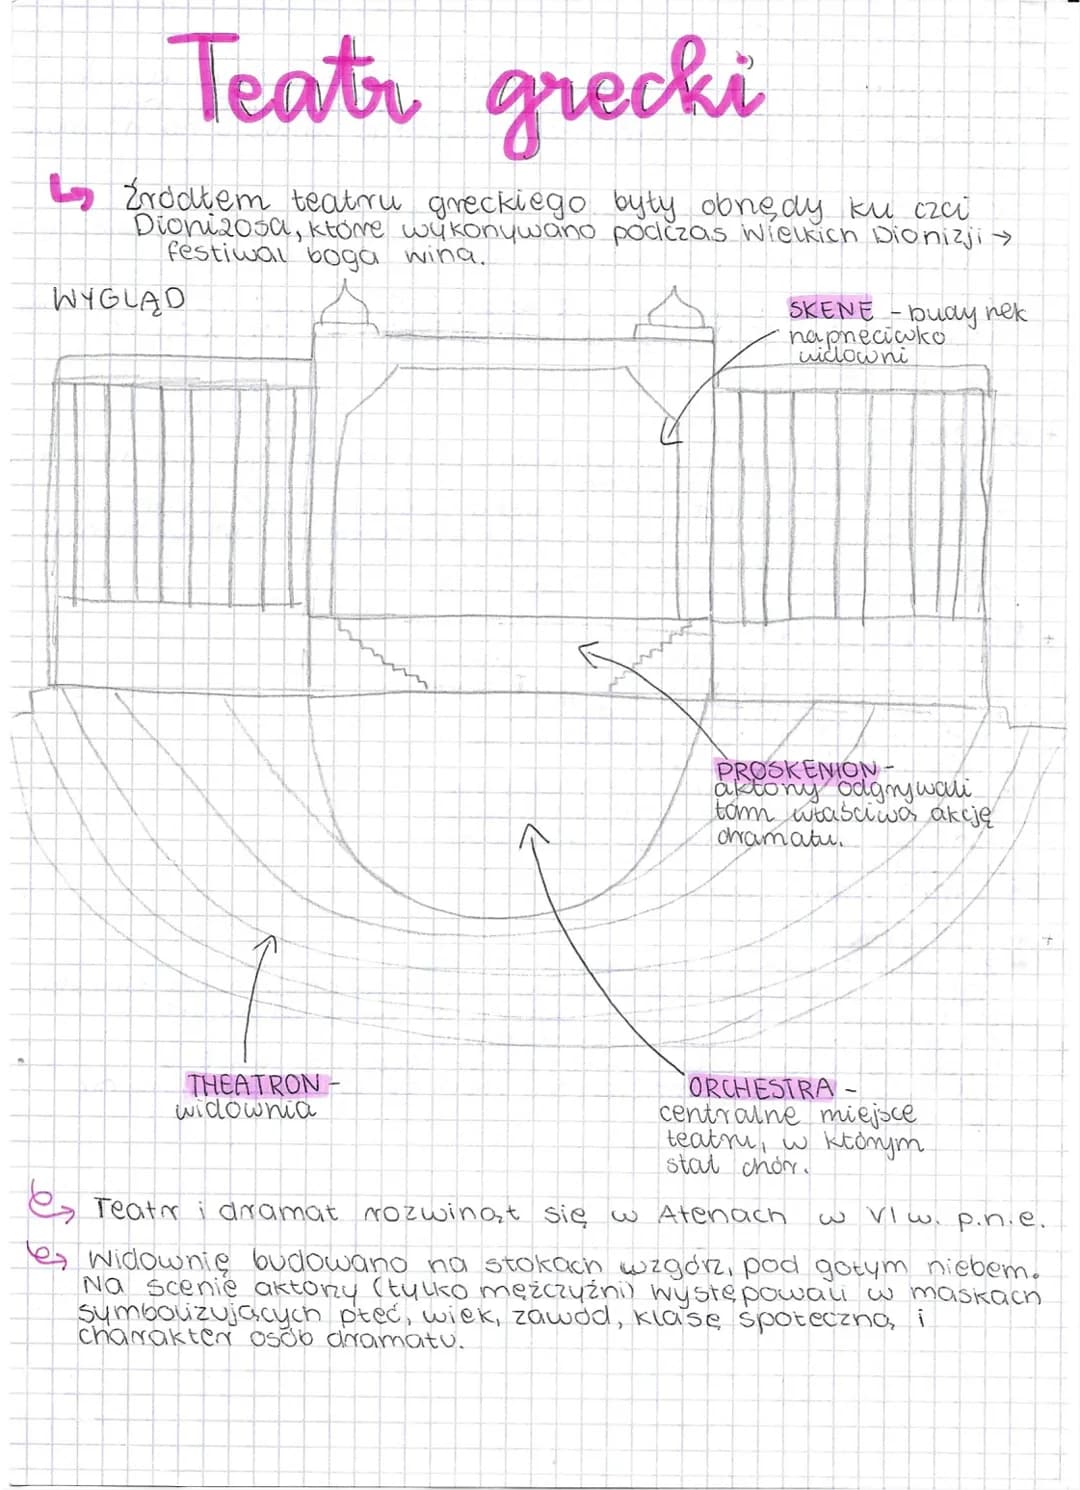 Teatr grecki
Źródłem teatru greckiego były obrzędy ku czci
Dionizosa, które wykonywano podczas Wielkich Dionizji →
festiwal boga wina.
WYGLĄD
SKENE - budynek
naprzeciwko
widowni
PROSKENION -
aktorzy odgrywali
tam właściwą akcję
dramatu.
THEATRON -
widownia
ORCHESTRA -
centralne miejsce
teatru, w którym
stał chór.
Teatr i dramat rozwinął się w Atenach w VI w. p.n.e.
Widownię budowano na stokach wzgórz, pod gołym niebem.
Na scenie aktorzy (tylko mężczyźni) występowali w maskach
symbolizujących płeć, wiek, zawód, klasę społeczną i
charakter osób dramatu.